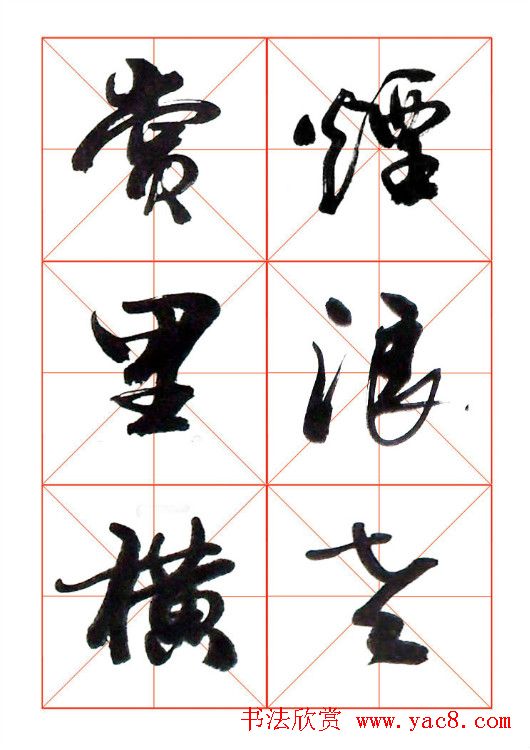 煙浪
賞里横
书法欣赏 www.yac8.com